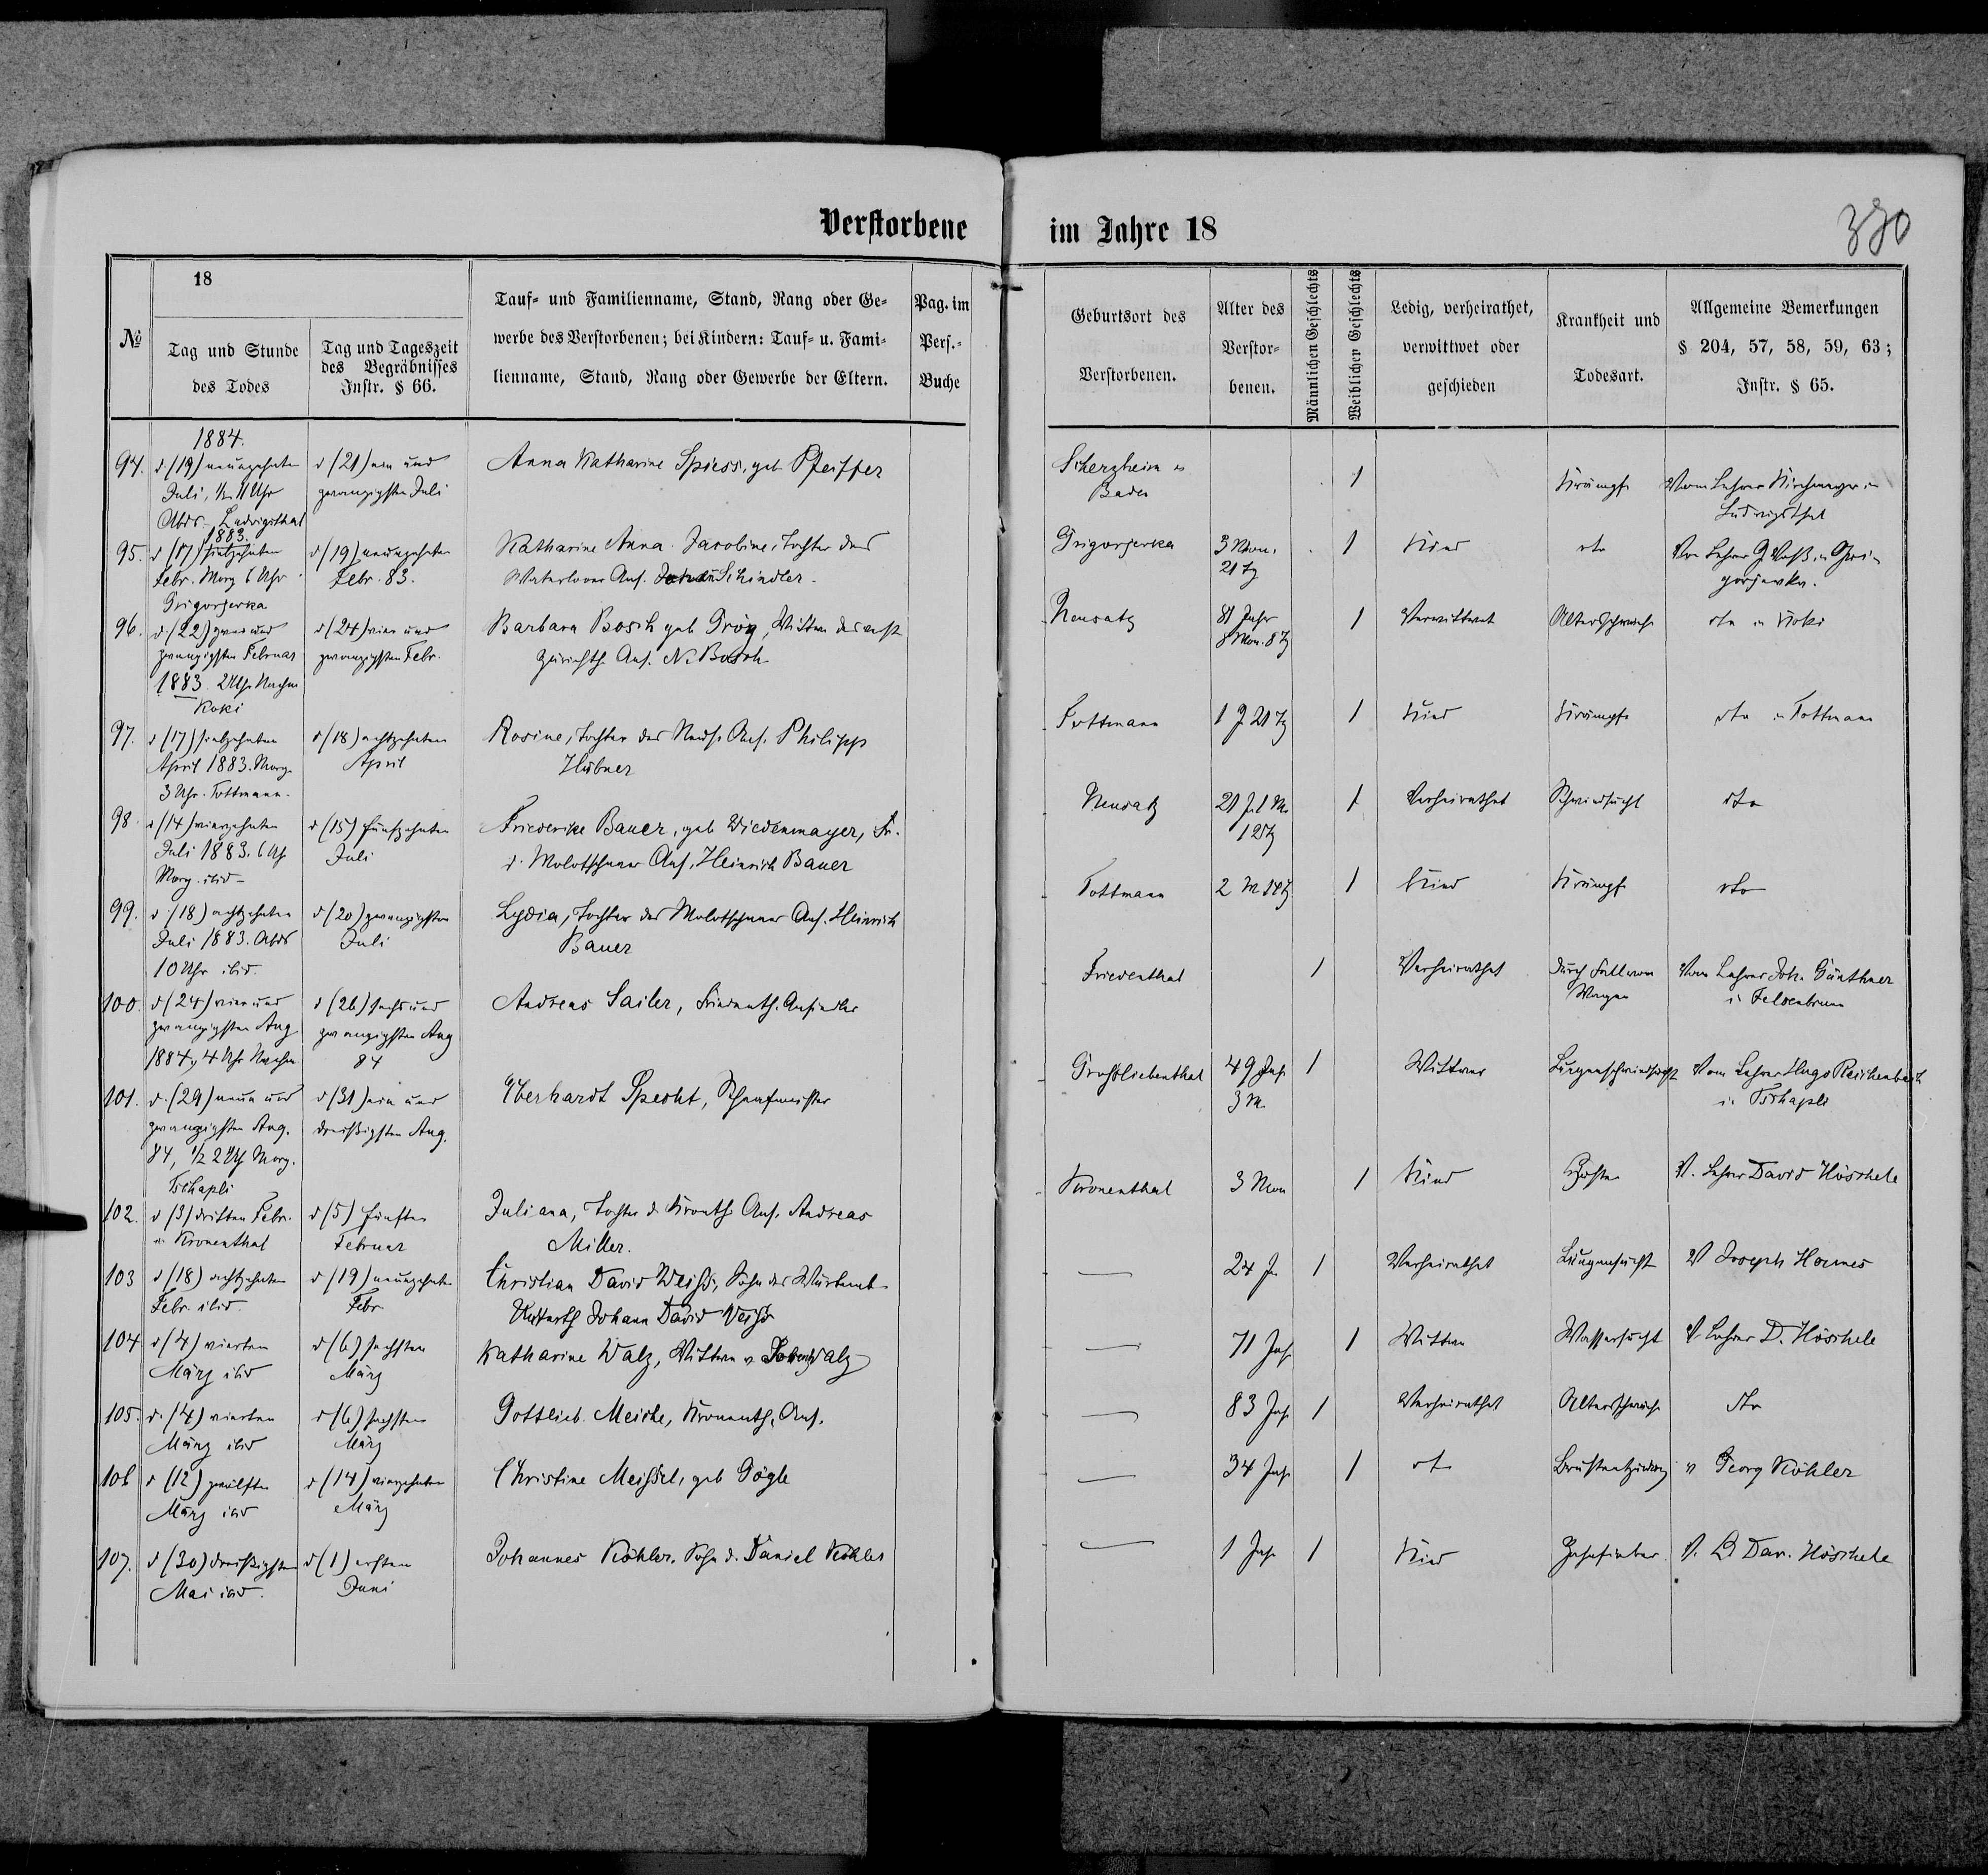 Verstorbene im Jahre 18
370
№
18
Tag und Stunde
des Todes
Tag und Tageszeit
des Begräbnisses
Instr. § 66.
Tauf- und Familienname, Stand, Rang oder Ge-
werbe des Verstorbenen; bei Kindern: Tauf- u. Fami-
lienname, Stand, Rang oder Gewerbe der Eltern.
Pag. im
Pers.-
Buche
Geburtsort des
Verstorbenen.
Alter des
Verstor-
benen.
Männlichen Geschlechts
Weiblichen Geschlechts
Ledig, verheirathet,
verwittwet oder
geschieden
Krankheit und
Todesart.
Allgemeine Bemerkungen
§ 204, 57, 58, 59, 63;
Instr. § 65.
1884.
94. d. (19) neunzehnten
Juli, 1/2 11 Uhr
Abds. Ludwigsthal
d (21) ein und
zwanzigsten Juli
Anna Katharine Spiess, geb Pfeiffer
Scherzheim in
Baden
1
Krämpfe
Vom Lehrer Kirchmayer in
Ludwigsthal
1883.
95. d (17) siebzehnten
Febr. Morg 6 Uhr
Grigorjewka
d (19) neunzehnten
Febr. 83.
Katharine Anna Jacobine, Tochter des
Waterlooer Ans. Schindler.
Grigorjewka
3 Mon.
21 Tg
1
Kind
dto
Von Lehrer G Voß, in Gri-
gorjewka.
96. d (22) zwei und
zwanzigsten Februar
1883. 2 Uhr Nachm
Koki
d (24) vier und
zwanzigsten Febr.
Barbara Bosch geb Grög, Wittwe des
Zürichth. Ans. N. Bosch
Neusatz
81 Jahr
8 Mon. 8 Tg
1
Verwittwet
Altersschwäche
dto in Koki
97. d (17) siebzehnten
April 1883. Morg.
3 Uhr. Tottmann.
d (18) achtzehnten
April
Rosine, Tochter des Neus. Ans. Philipp
Hübner
Tottmann
1 J 21 Tg
1
Kind
Krämpfe
dto in Tottmann
98 d (14) vierzehnten
Juli 1883. 6 Uhr
Morg. ibid
d (15) fünfzehnten
Juli
Friederike Bauer, geb Wiedenmayer, Fr.
d. Molotschnaer Ans. Heinrich Bauer
Neusatz
21 J. 1 M.
12 Tg
1
Verheirathet
Schwindsucht
dto
99. d (18) achtzehnten
Juli 1883. Abds
10 Uhr ibid.
d (20) zwanzigsten
Juli
Lydia, Tochter des Molotschnaer Ans. Heinrich
Bauer
Tottmann
2 M
1
Kind
Krämpfe
dto
100. d (24) vier und
zwanzigsten Aug
1884, 4 Uhr Nachm
d (26) sechs und
zwanzigsten Aug
84
Andreas Sailer, Friedenth. Ansiedler
Friedenthal
1
Verheirathet
durch Fall vom
Wagen
Vom Lehrer Joh. Günthner
in Felsenbrunn
101. d. (29) neun und
zwanzigsten Aug.
84, 1/2 2 Uhr Morg.
Tschapli
d (31) ein und
dreißigsten Aug.
Eberhardt Specht, Schafmeister
Großliebenthal
49 Jahr
3 M.
1
Wittwer
Lungenschwindsucht
Vom Lehrer Hugo Reichenbach
in Tschapli
102. d (3) dritten Febr.
in Kronenthal
d (5) fünften
Februar
Juliana, Tochter d. Kronth. Ans. Andreas
Miller.
Kronenthal
3 Mon
1
Kind
Husten
V. Lehrer David Höschele
103 d (18) achtzehnten
Febr. ibid.
d (19) neunzehnten
Febr
Christian David Weiss, Sohn des Würtemb.
Unterth Johann David Weiß
24 Jr
1
Verheirathet
Lungensucht
V Joseph Hormes
104 d (4) vierten
März ibid
d (6) sechsten
März
Katharine Walz, Wittwe v Walz
71 Jahr
1
Wittwe
Wassersucht
V. Lehrer D. Höschele
105. d. (4) vierten
März ibid
d (6) sechsten
März
Gottlieb Meiche, Kronenth. Ans.
83 Jahr
1
Verheirathet
Altersschwäche
dto
106 d (12) zwölften
März ibid
d (14) vierzehnten
März
Christine Meissel, geb Gögle
34 Jahr
1
dt
Brustentzündung
v Georg Köhler
107. d (30) dreißigsten
Mai ibid.
d (1) ersten
Juni
Johannes Köhler, Sohn d. Daniel Köhler
1 Jahr
1
Kind
Zahnfieber.
V. L Dav. Höschele